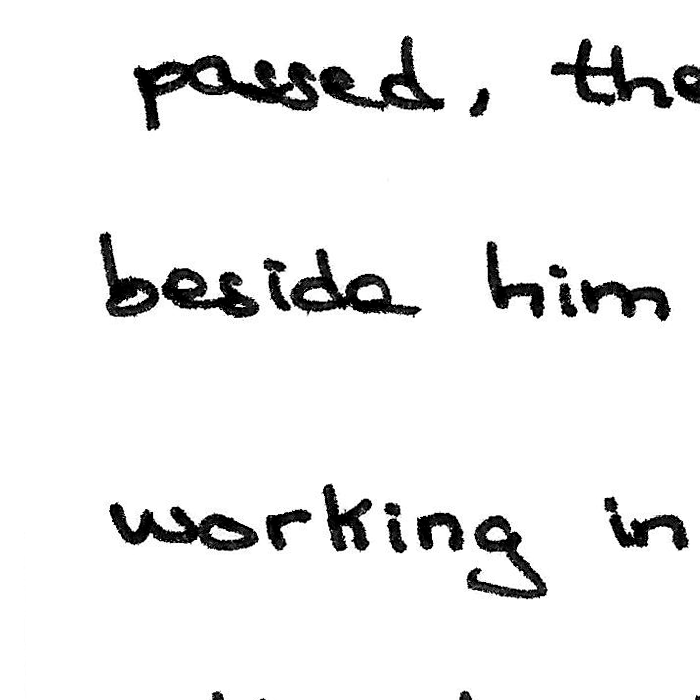 passed, the
beside him
working in